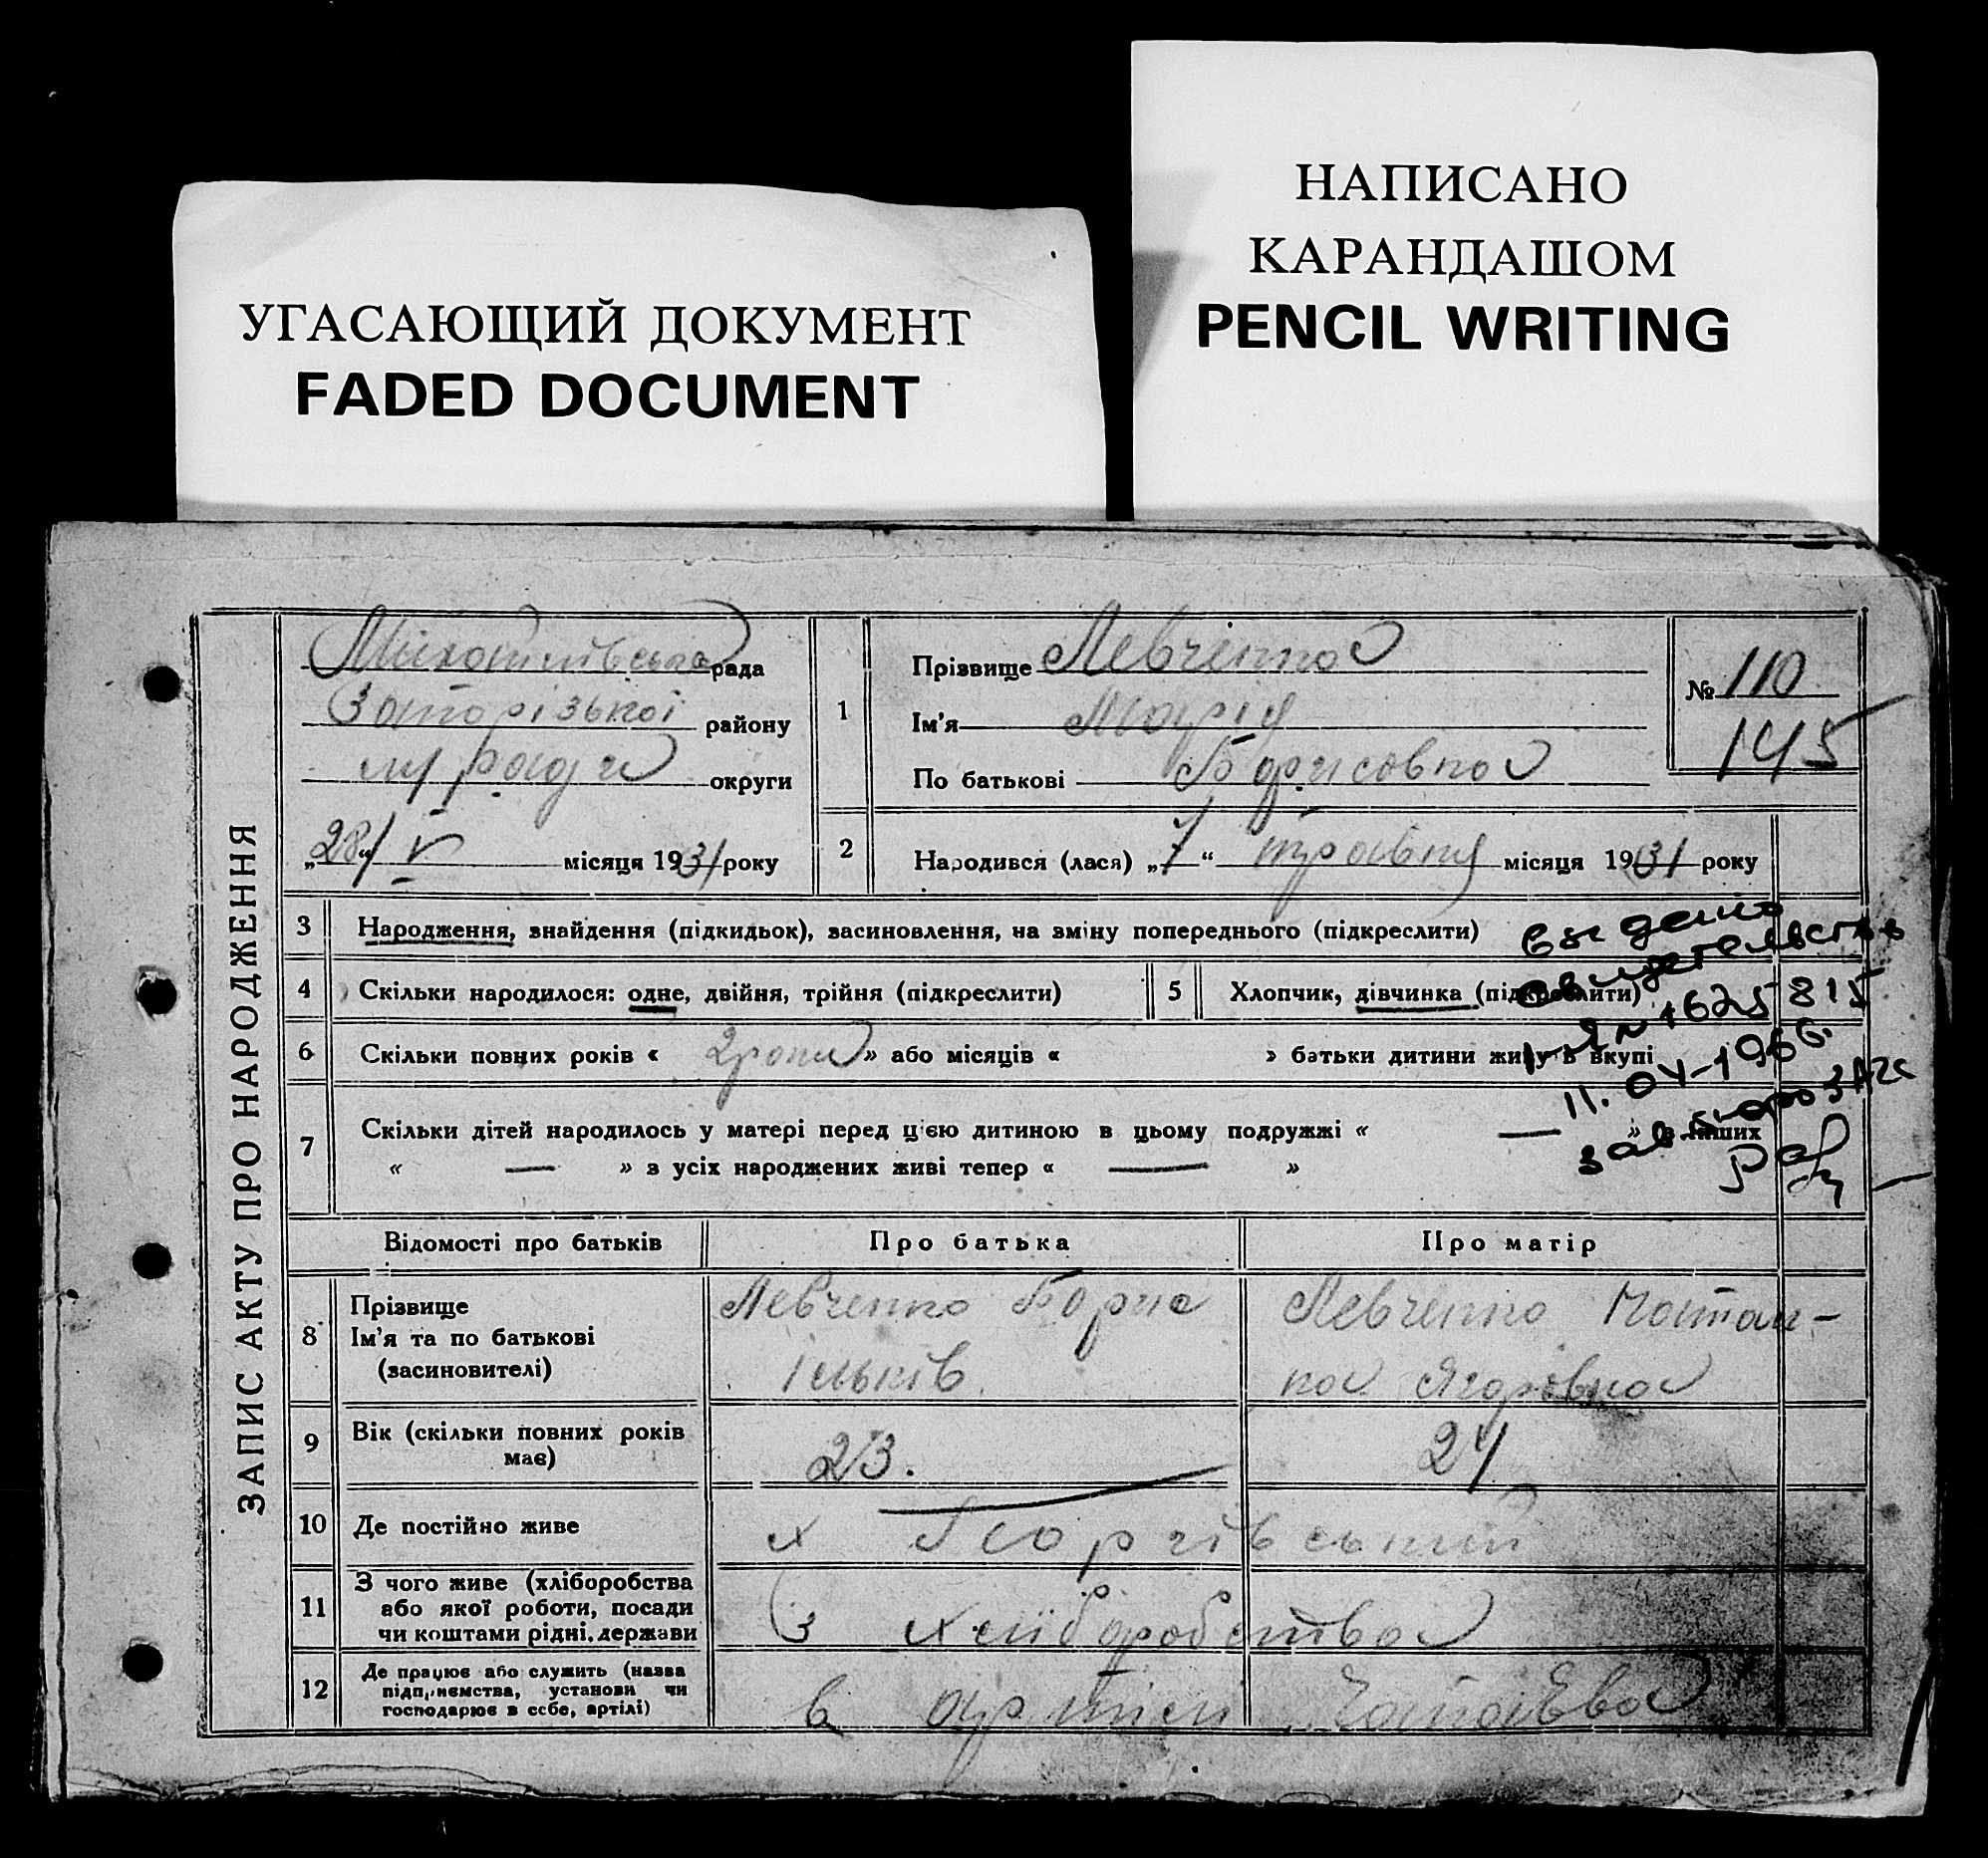 НАПИСАНО
КАРАНДАШОМ
PENCIL WRITING
УГАСАЮЩИЙ ДОКУМЕНТ
FADED DOCUMENT
ЗАПИС АКТУ ПРО НАРОДЖЕННЯ
рада
Запорізької району
м/ради округи
„28“ V місяця 1931 року
1
Прізвище Левченко
Ім'я Марія
По батькові Борисовна
№ 110
145
2
Народився (лася) „7“ травня місяця 1931 року
3 Народження, знайдення (підкидьок), засиновлення, на зміну попереднього (підкреслити)
4 Скільки народилося: одне, двійня, трійня (підкреслити)
5 Хлопчик, дівчинка (підкреслити)
6 Скільки повних років « 2 роки » або місяців « » батьки дитини живуть вкупі
7 Скільки дітей народилось у матері перед цією дитиною в цьому подружжі « — » в інших
« — » з усіх народжених живі тепер « — »
Выдано
свидетельство
1-ЯП 1625815
11.04-1966.
зав. бюро ЗАГС
Відомості про батьків
Про батька
Про матір
8 Прізвище
Ім'я та по батькові
(засиновителі)
Левченко Борис
Ільків
Левченко Натал-
ка Ягорівна
9 Вік (скільки повних років
має)
23.
24
10 Де постійно живе
х Георгіївський
11 З чого живе (хліборобства
або якої роботи, посади
чи коштами рідні, держави
З хліборобства
12 Де працює або служить (назва
підприємства, установи чи
господарює в себе, артілі)
в артілі Чапаєва